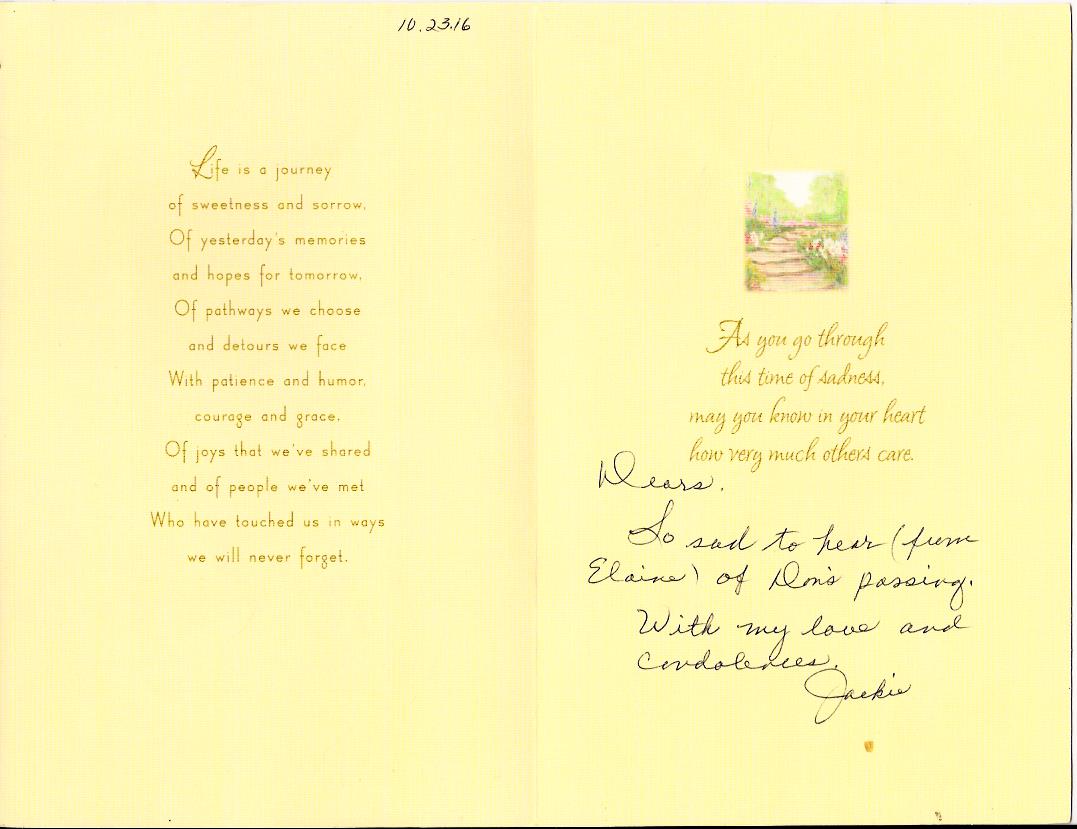 10.23.16
Life is a journey
of sweetness and sorrow,
Of yesterday's memories
and hopes for tomorrow,
Of pathways we choose
and detours we face
With patience and humor,
courage and grace,
Of joys that we've shared
and of people we've met
Who have touched us in ways
we will never forget.
As you go through
this time of sadness,
may you know in your heart
how very much others care.
Dears.
So sad to hear (from
Elaine) of Don's passing.
With my love and
condolences.
Jackie